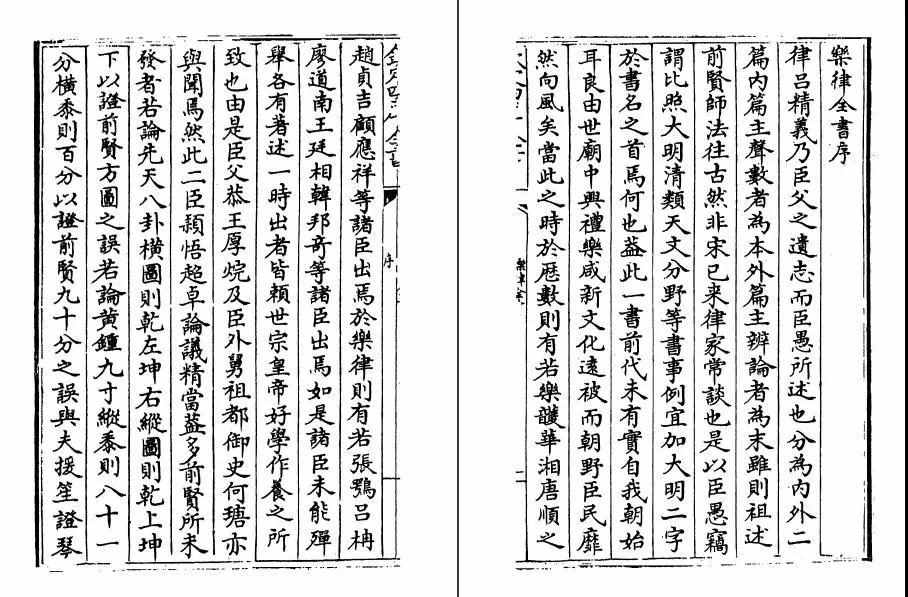 樂律全書序
律呂精義乃臣父之遺志而臣愚所述也分為内外二
篇内篇主聲數者為本外篇主辨論者為末雖則祖述
前賢師法往古然非宋已来律家常談也是以臣愚竊
謂比照大明清類天文分野等書事例宜加大明二字
於書名之首焉何也葢此一書前代未有實自我朝始
耳良由世廟中興禮樂咸新文化逺被而朝野臣民靡
然向風矣當此之時於厯數則有若樂頀華湘唐順之
樂律全
二
欽定四庫全書
序
趙貞吉顧應祥等諸臣出焉於樂律則有若張鶚吕柟
廖道南王廷相韓邦竒等諸臣出焉如是諸臣未能殫
舉各有著述一時出者皆頼世宗皇帝好學作養之所
致也由是臣父恭王厚烷及臣外舅祖都御史何瑭亦
與聞焉然此二臣頴悟超卓論議精當葢多前賢所未
發者若論先天八卦横圖則乾左坤右縱圖則乾上坤
下以證前賢方圖之誤若論黄鍾九寸縱黍則八十一
分横黍則百分以證前賢九十分之誤與夫援笙證琴